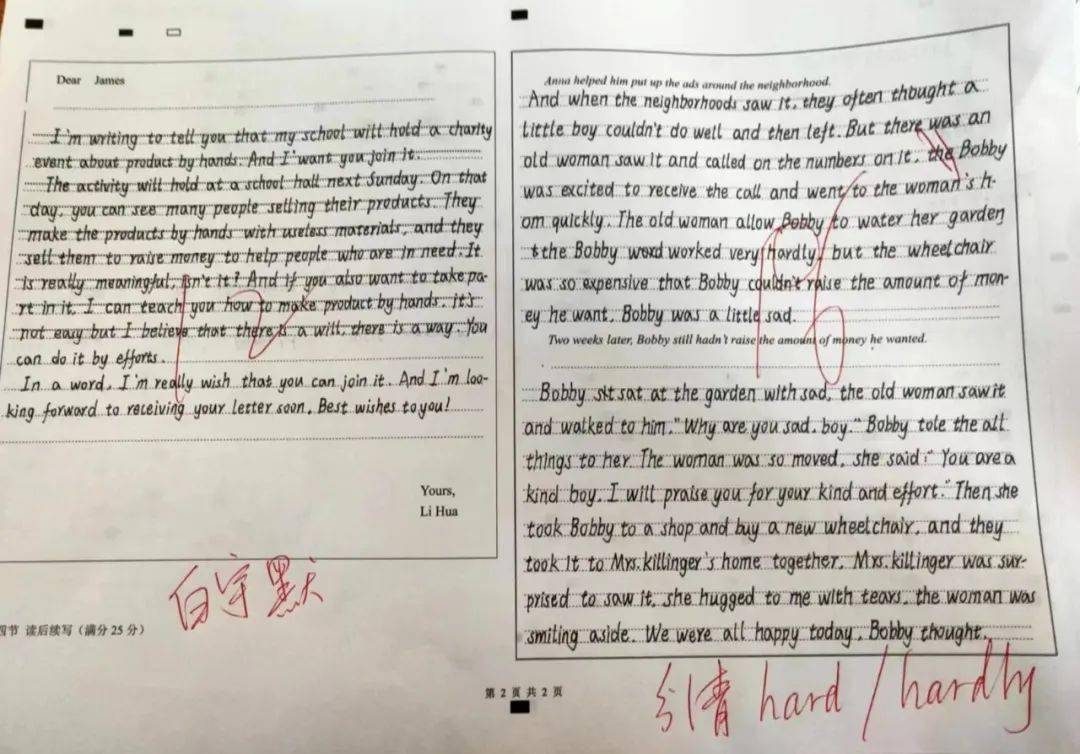 Dear James
I'm writing to tell you that my school will hold a charity
event about product by hands. And I want you join it.
The activity will hold at a school hall next Sunday. On that
day, you can see many people selling their products. They
make the products by hands with useless materials, and they
sell them to raise money to help people who are in need. It
is really meaningful, isn't it? And if you also want to take pa-
rt in it, I can teach you how to make product by hands. it's
not easy but I believe that there is a will, there is a way. You
can do it by efforts.
In a word, I'm really wish that you can join it. And I'm loo-
king forward to receiving your letter soon. Best wishes to you!
Yours,
Li Hua
白宇默
12
四节 读后续写（满分 25 分）
Anna helped him put up the ads around the neighborhood.
And when the neighborhoods saw it, they often thought a
little boy couldn't do well and then left. But there was an
old woman saw it and called on the numbers on it, the Bobby
was excited to receive the call and went to the woman's h-
om quickly. The old woman allow Bobby to water her garden
the Bobby worked very hardly, but the wheelchair
was so expensive that Bobby couldn't raise the amount of mon-
ey he want. Bobby was a little sad.
Two weeks later, Bobby still hadn't raise the amount of money he wanted.
Bobby sat at the garden with sad, the old woman saw it
and walked to him. "Why are you sad, boy." Bobby tole the all
things to her. The woman was so moved, she said: "You are a
kind boy, I will praise you for your kind and effort." Then she
took Bobby to a shop and buy a new wheelchair, and they
took it to Mrs.killinger's home together. Mrs.killinger was sur-
prised to saw it, she hugged to me with tears, the woman was
smiling aside. We were all happy today, Bobby thought.
第 2 页 共 2 页
hard / hardly